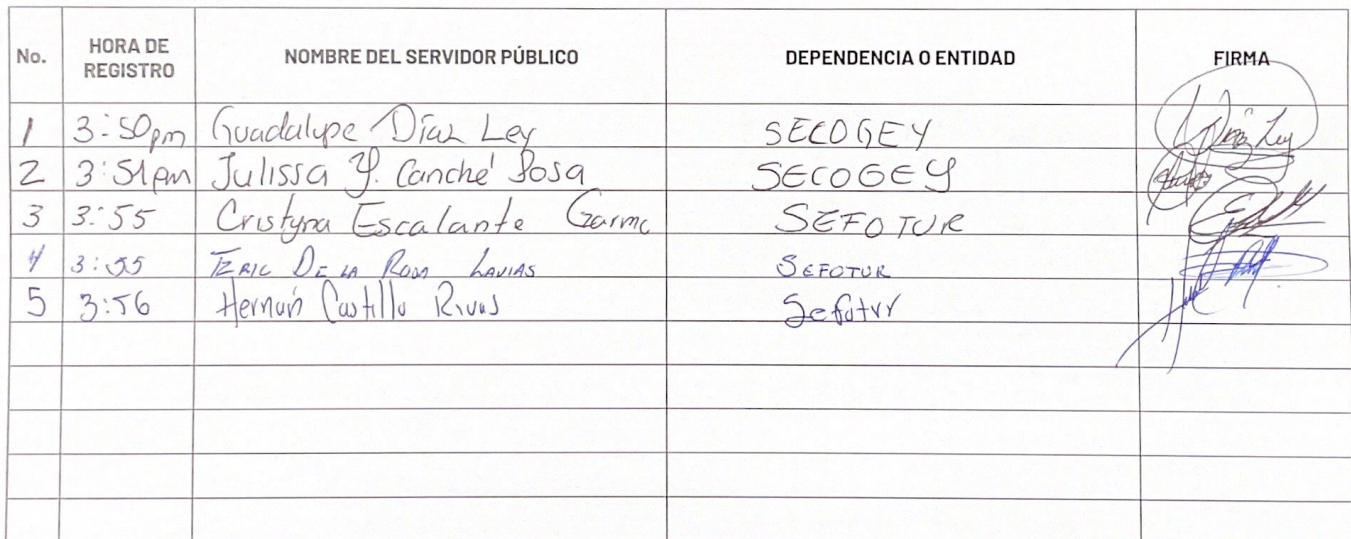 No. HORA DE REGISTRO NOMBRE DEL SERVIDOR PÚBLICO DEPENDENCIA O ENTIDAD FIRMA
1 3:50pm Guadalupe Díaz Ley SECOGEY
2 3:51pm Julissa Y. Canché Sosa SECOGEY
3 3:55 Cristyna Escalante Garma SEFOTUR
4 3:55 ERIC DE LA ROSA SEFOTUR
5 3:56 Hernán Castillo Rivas Sefotur